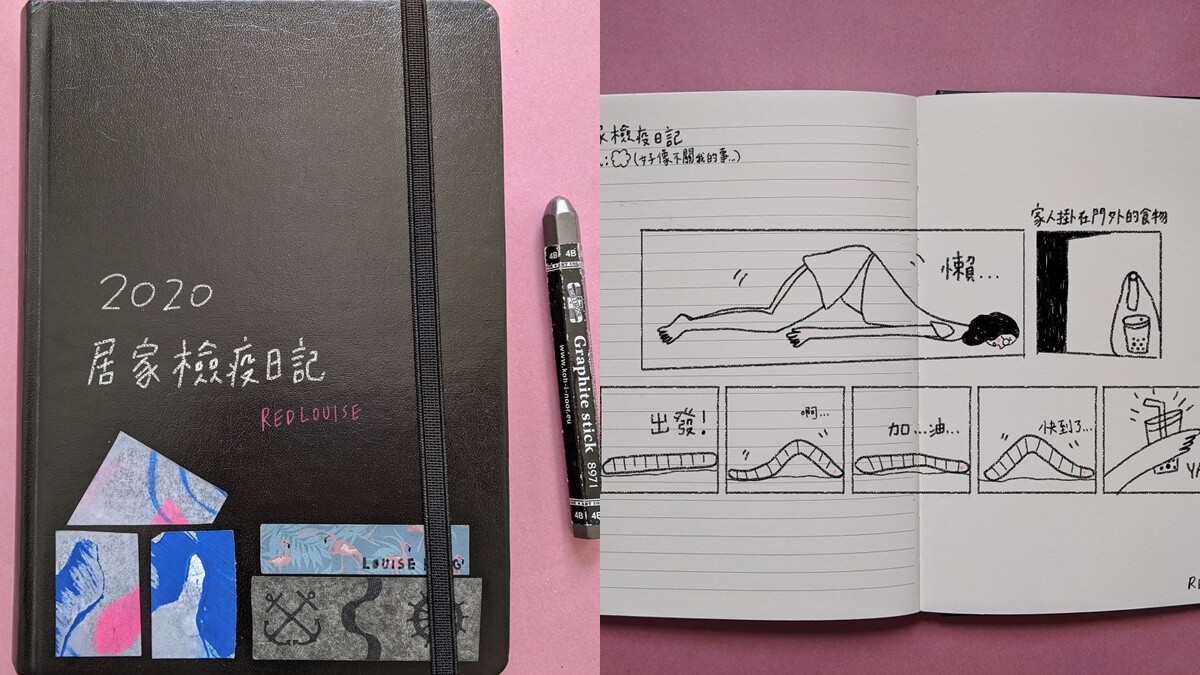 2020
居家檢疫日記
REDLOUISE
LOUISE
4B 4B
Graphite stick
8971
www.koh-i-noor.eu
4B 4B
家檢疫日記
(好像不關我的事...)
懶...
家人掛在門外的食物
出發!
啊...
加...油...
快到了...
YA
RE